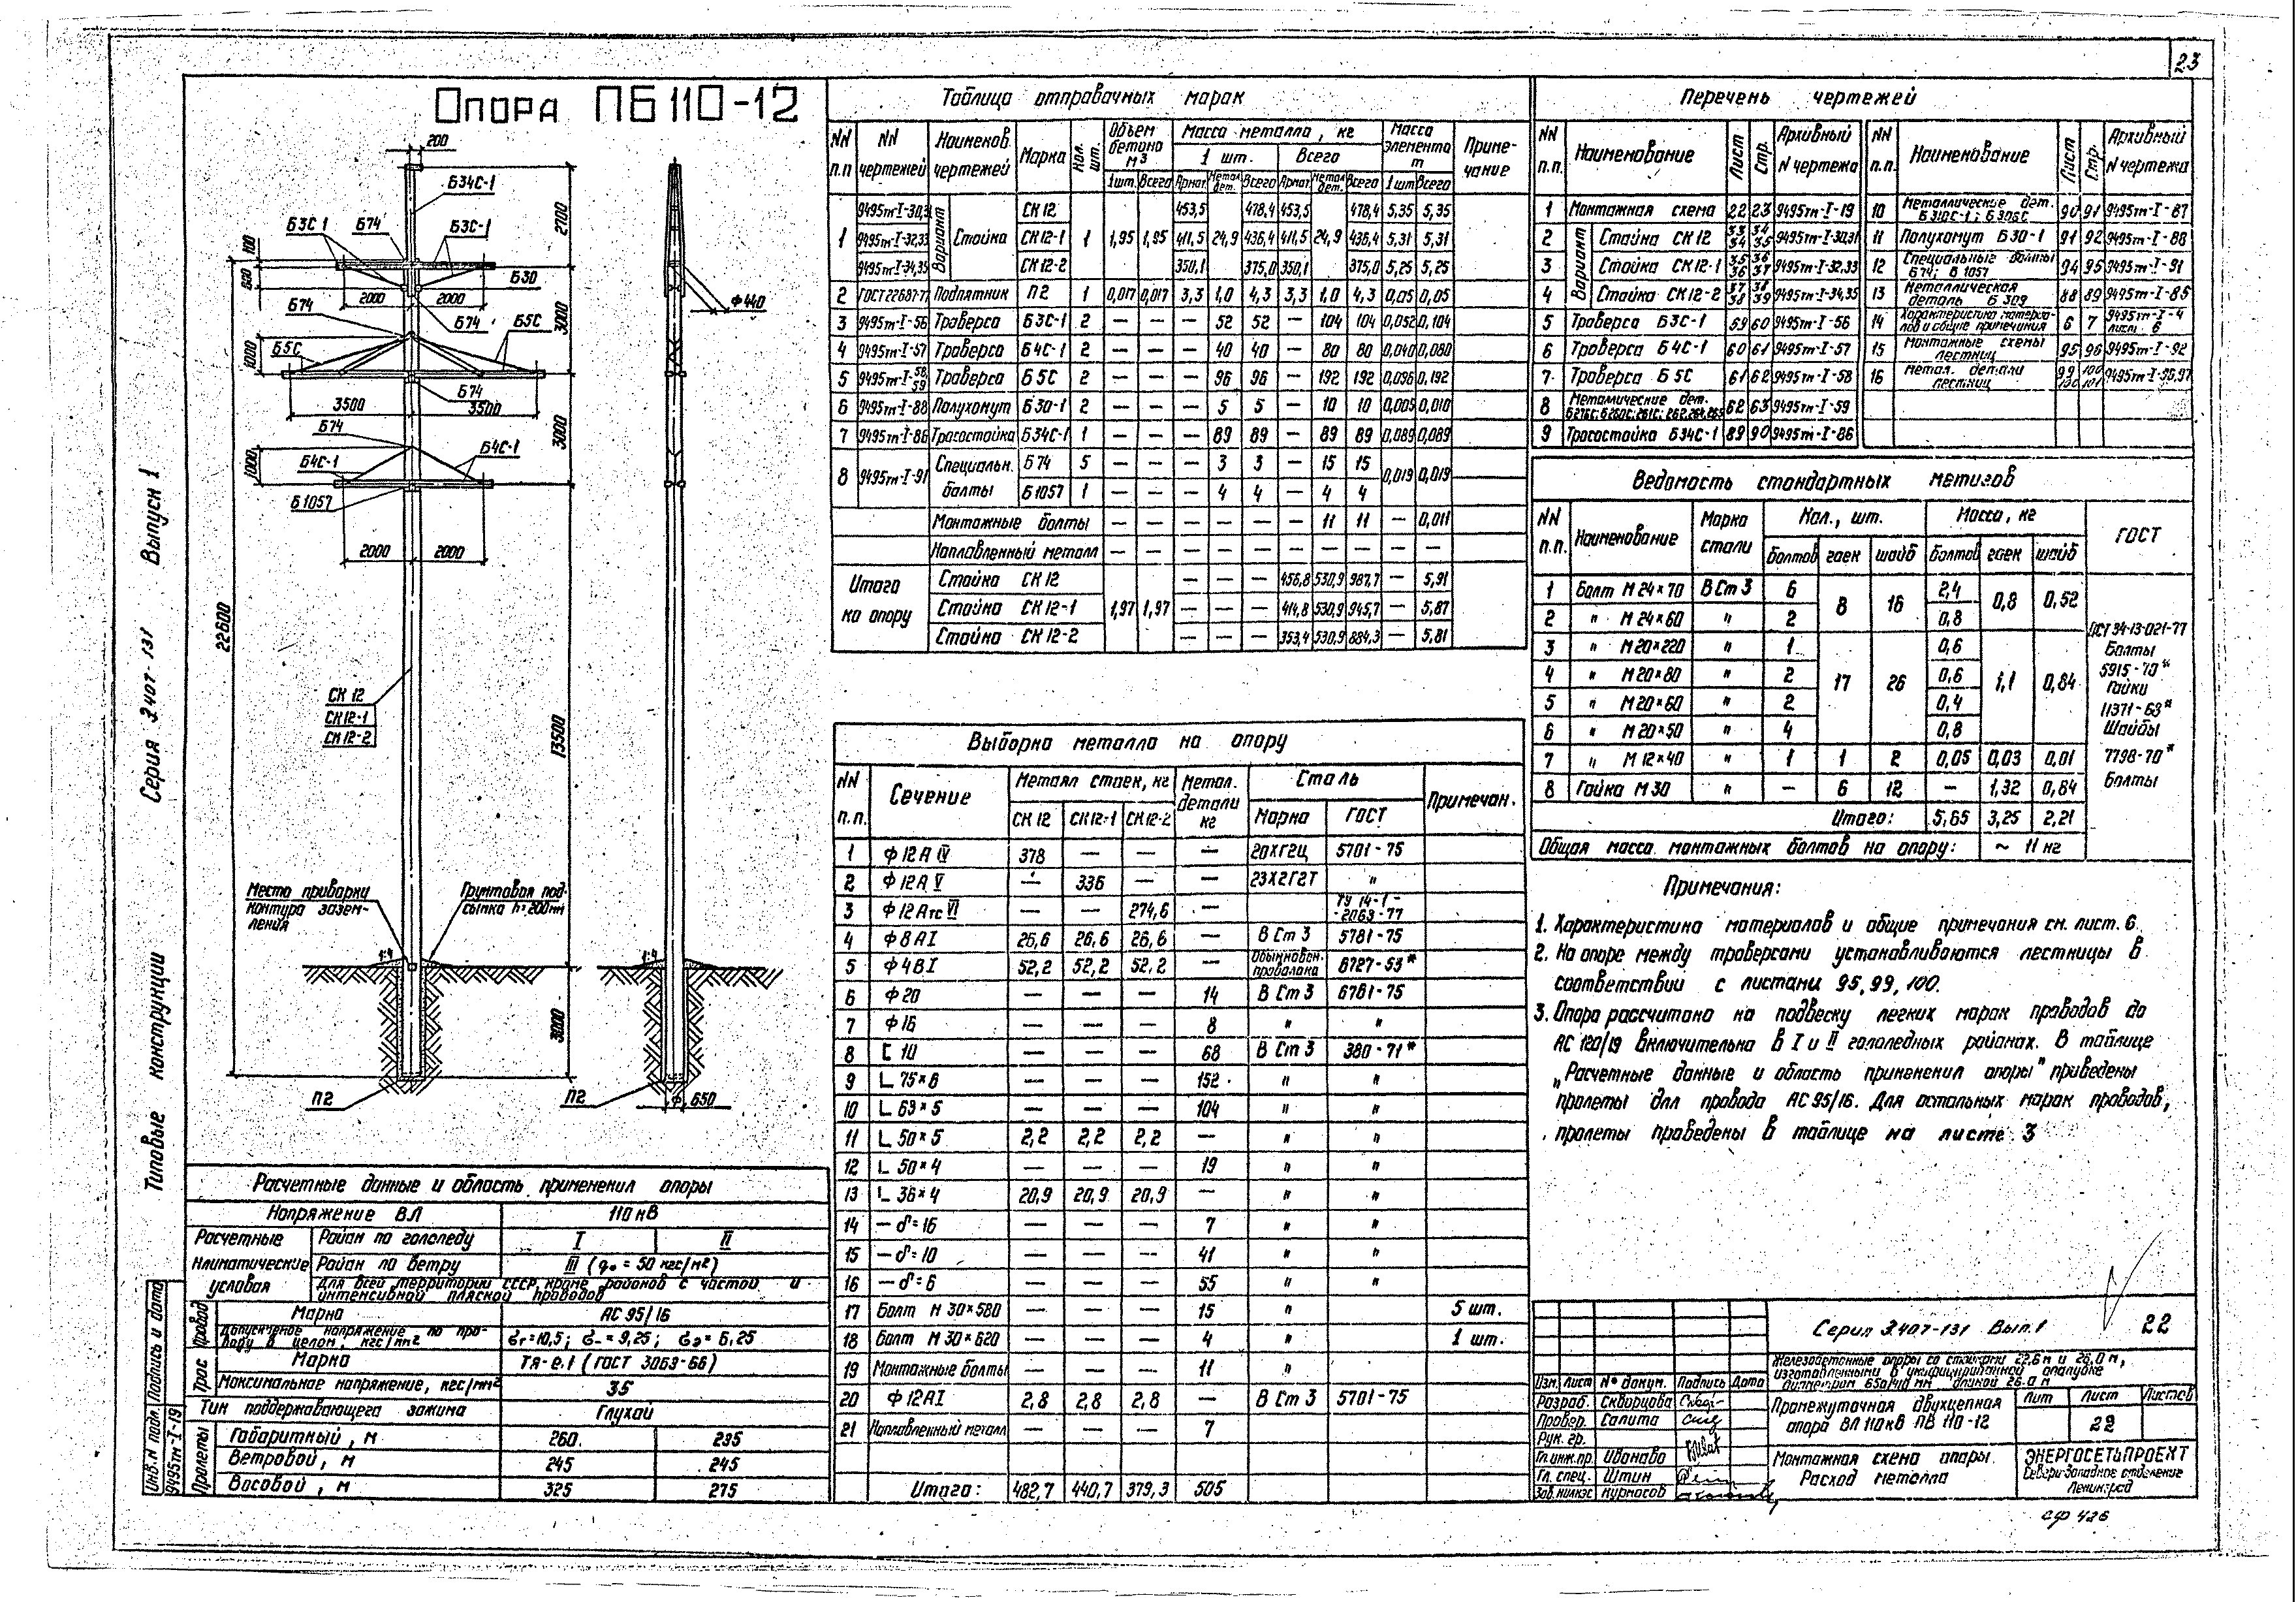 23
Опора ПБ 110-12
200
Б34С-1
Б3С 1 Б74 Б3С-1
2700
100
Б30
2000 2000
Б74
Б74 Б5С
ф440
3000
Б5С
1000
Б74
3500 3500
Б74
3000
Б4С-1 Б4С-1
1000
Б1057
2000 2000
22600
СК 12
СК12-1
СК 12-2
13500
Место приварки контура заземления
Грунтовая подсыпка h=200мм
1:4 1:4
3000
П2 П2 ф 650
Типовые конструкции Серия 3.407-131 Выпуск 1
Расчетные данные и область применения опоры
Напряжение ВЛ 110 кВ
Расчетные климатические условия
Район по гололеду I II
Район по ветру III (q₀ = 50 кгс/м²)
Для всей территории СССР, кроме районов с частой и интенсивной пляской проводов
Провод Марка АС 95/16
Допускаемое напряжение по проводу в целом, кгс/мм² бг=10,5; б- = 9,25; бэ= 6,25
Трос Марка ТЯ-8.1 (ГОСТ 3063-66)
Максимальное напряжение, кгс/мм² 35
Тип поддерживающего зажима Глухой
Пролеты Габаритный, м 260 235
Ветровой, м 245 245
Весовой, м 325 275
Инв. N подл. Подпись и дата
9495тм-I-19
Таблица отправочных марок
NN п.п NN чертежей Наименов. чертежей Марка Кол. шт. Объем бетона м³ Масса металла, кг Масса элемента т Примечание
1 шт. Всего
1шт. Всего Армат. Метал. дет. Всего Армат. Метал. дет. Всего 1шт Всего
1 Вариант Стойка 1 1,95 1,95
9495тм-I-30,31 СК 12 453,5 478,4 453,5 478,4 5,35 5,35
9495тм-I-32,33 СК12-1 411,5 24,9 436,4 411,5 24,9 436,4 5,31 5,31
9495тм-I-34,35 СК12-2 350,1 375,0 350,1 375,0 5,25 5,25
2 ГОСТ22687-77 Подпятник П2 1 0,017 0,017 3,3 1,0 4,3 3,3 1,0 4,3 0,05 0,05
3 9495тм-I-56 Траверса Б3С-1 2 — — — 52 52 — 104 104 0,052 0,104
4 9495тм-I-57 Траверса Б4С-1 2 — — — 40 40 — 80 80 0,040 0,080
5 9495тм-I-58,59 Траверса Б5С 2 — — — 96 96 — 192 192 0,096 0,192
6 9495тм-I-88 Полухомут Б30-1 2 — — — 5 5 — 10 10 0,005 0,010
7 9495тм-I-86 Тросостойка Б34С-1 1 — — — 89 89 — 89 89 0,089 0,089
8 9495тм-I-91 Специальн. болты Б74 5 — — — 3 3 — 15 15 0,019 0,019
Б1057 1 — — — 4 4 — 4 4
Монтажные болты — — — — — — 11 11 — 0,011
Наплавленный металл — — — — — — — — — —
Итого на опору 1,97 1,97
Стойка СК 12 — — — 456,8 530,9 987,7 — 5,91
Стойка СК 12-1 — — — 414,8 530,9 945,7 — 5,87
Стойка СК 12-2 — — — 353,4 530,9 884,3 — 5,81
Выборка металла на опору
NN п.п. Сечение Металл стоек, кг Метал. детали кг Сталь Примечан.
СК 12 СК12-1 СК12-2 Марка ГОСТ
1 ф 12А IV 378 — — — 20ХГ2Ц 5781-75
2 ф 12А V — 336 — — 23Х2Г2Т "
3 ф 12Атс VI — — 274,6 ТУ 14-1-2063-77
4 ф 8АI 26,6 26,6 26,6 — В Ст 3 5781-75
5 ф 4ВI 52,2 52,2 52,2 — Обыкновен. проволока 6727-53*
6 ф 20 — — — 14 В Ст 3 5781-75
7 ф 16 — — — 8 " "
8 [ 10 — — — 68 В Ст 3 380-71*
9 L 75×6 — — — 152 " "
10 L 63×5 — — — 104 " "
11 L 50×5 2,2 2,2 2,2 — " "
12 L 50×4 — — — 19 " "
13 L 36×4 20,9 20,9 20,9 — " "
14 — δ=16 — — — 7 " "
15 — δ=10 — — — 41 " "
16 — δ=6 — — — 55 " "
17 Болт М 30×580 — — — 15 " 5 шт.
18 Болт М 30×620 — — — 4 " 1 шт.
19 Монтажные болты — — — 11 "
20 ф 12АI 2,8 2,8 2,8 — В Ст 3 5781-75
21 Наплавленный металл — — — 7
Итого: 482,7 440,7 379,3 505
Перечень чертежей
NN п.п. Наименование Лист Стр. Архивный N чертежа NN п.п. Наименование Лист Стр. Архивный N чертежа
1 Монтажная схема 22 23 9495тм-I-19 10 Металлические дет. Б310С-1; Б306С 90 91 9495тм-I-87
2 Вариант Стойка СК 12 33 34 34 35 9495тм-I-30,31 11 Полухомут Б30-1 91 92 9495тм-I-88
3 Стойка СК12-1 35 36 36 37 9495тм-I-32,33 12 Специальные болты Б74; Б1057 94 95 9495тм-I-91
4 Стойка СК12-2 37 38 38 39 9495тм-I-34,35 13 Металлическая деталь Б 309 88 89 9495тм-I-85
5 Траверса Б3С-1 59 60 9495тм-I-56 14 Характеристика материалов и общие примечания 6 7 9495тм-I-4 лист. 6
6 Траверса Б4С-1 60 61 9495тм-I-57 15 Монтажные схемы лестниц 95 96 9495тм-I-92
7 Траверса Б5С 61 62 9495тм-I-58 16 Метал. детали лестниц 99 100 100 101 9495тм-I-96,97
8 Металлические дет. 62 63 9495тм-I-59
9 Тросостойка Б34С-1 89 90 9495тм-I-86
Ведомость стандартных метизов
NN п.п. Наименование Марка стали Кол., шт. Масса, кг ГОСТ
болтов гаек шайб болтов гаек шайб
1 Болт М 24×70 В Ст 3 6 8 16 2,4 0,8 0,52
2 " М 24×60 " 2 0,8
3 " М 20×220 " 1 17 26 0,6 1,1 0,84
4 " М 20×80 " 2 0,6
5 " М 20×60 " 2 0,4
6 " М 20×50 " 4 0,8
7 " М 12×40 " 1 1 2 0,05 0,03 0,01
8 Гайка М 30 " — 6 12 — 1,32 0,84
ОСТ 34-13-021-77
Болты
5915-70*
Гайки
11371-68*
Шайбы
7798-70*
Болты
Итого: 5,65 3,25 2,21
Общая масса монтажных болтов на опору: ~ 11 кг
Примечания:
1. Характеристика материалов и общие примечания см. лист. 6
2. На опоре между траверсами устанавливаются лестницы в
соответствии с листами 95, 99, 100.
3. Опора рассчитана на подвеску легких марок проводов до
АС 120/19 включительно в I и II гололедных районах. В таблице
„Расчетные данные и область применения опоры" приведены
пролеты для провода АС 95/16. Для остальных марок проводов,
пролеты приведены в таблице на листе 3
Серия 3.407-131 Вып.1 22
Железобетонные опоры со стойками 22,6 м и 26,0 м,
изготовленными в унифицированной опалубке
диаметром 650/410 мм длиной 26.0 м
Изм. Лист № докум. Подпись Дата
Разраб. Скворцова
Провер. Салита
Рук. гр.
Гл.инж.пр. Иванова
Гл. спец. Штин
Курносов
Промежуточная двухцепная
опора ВЛ 110кВ ПБ 110-12
Лит Лист Листов
22
Монтажная схема опоры.
Расход металла
ЭНЕРГОСЕТЬПРОЕКТ
Северо-Западное отделение
Ленинград
сф 426